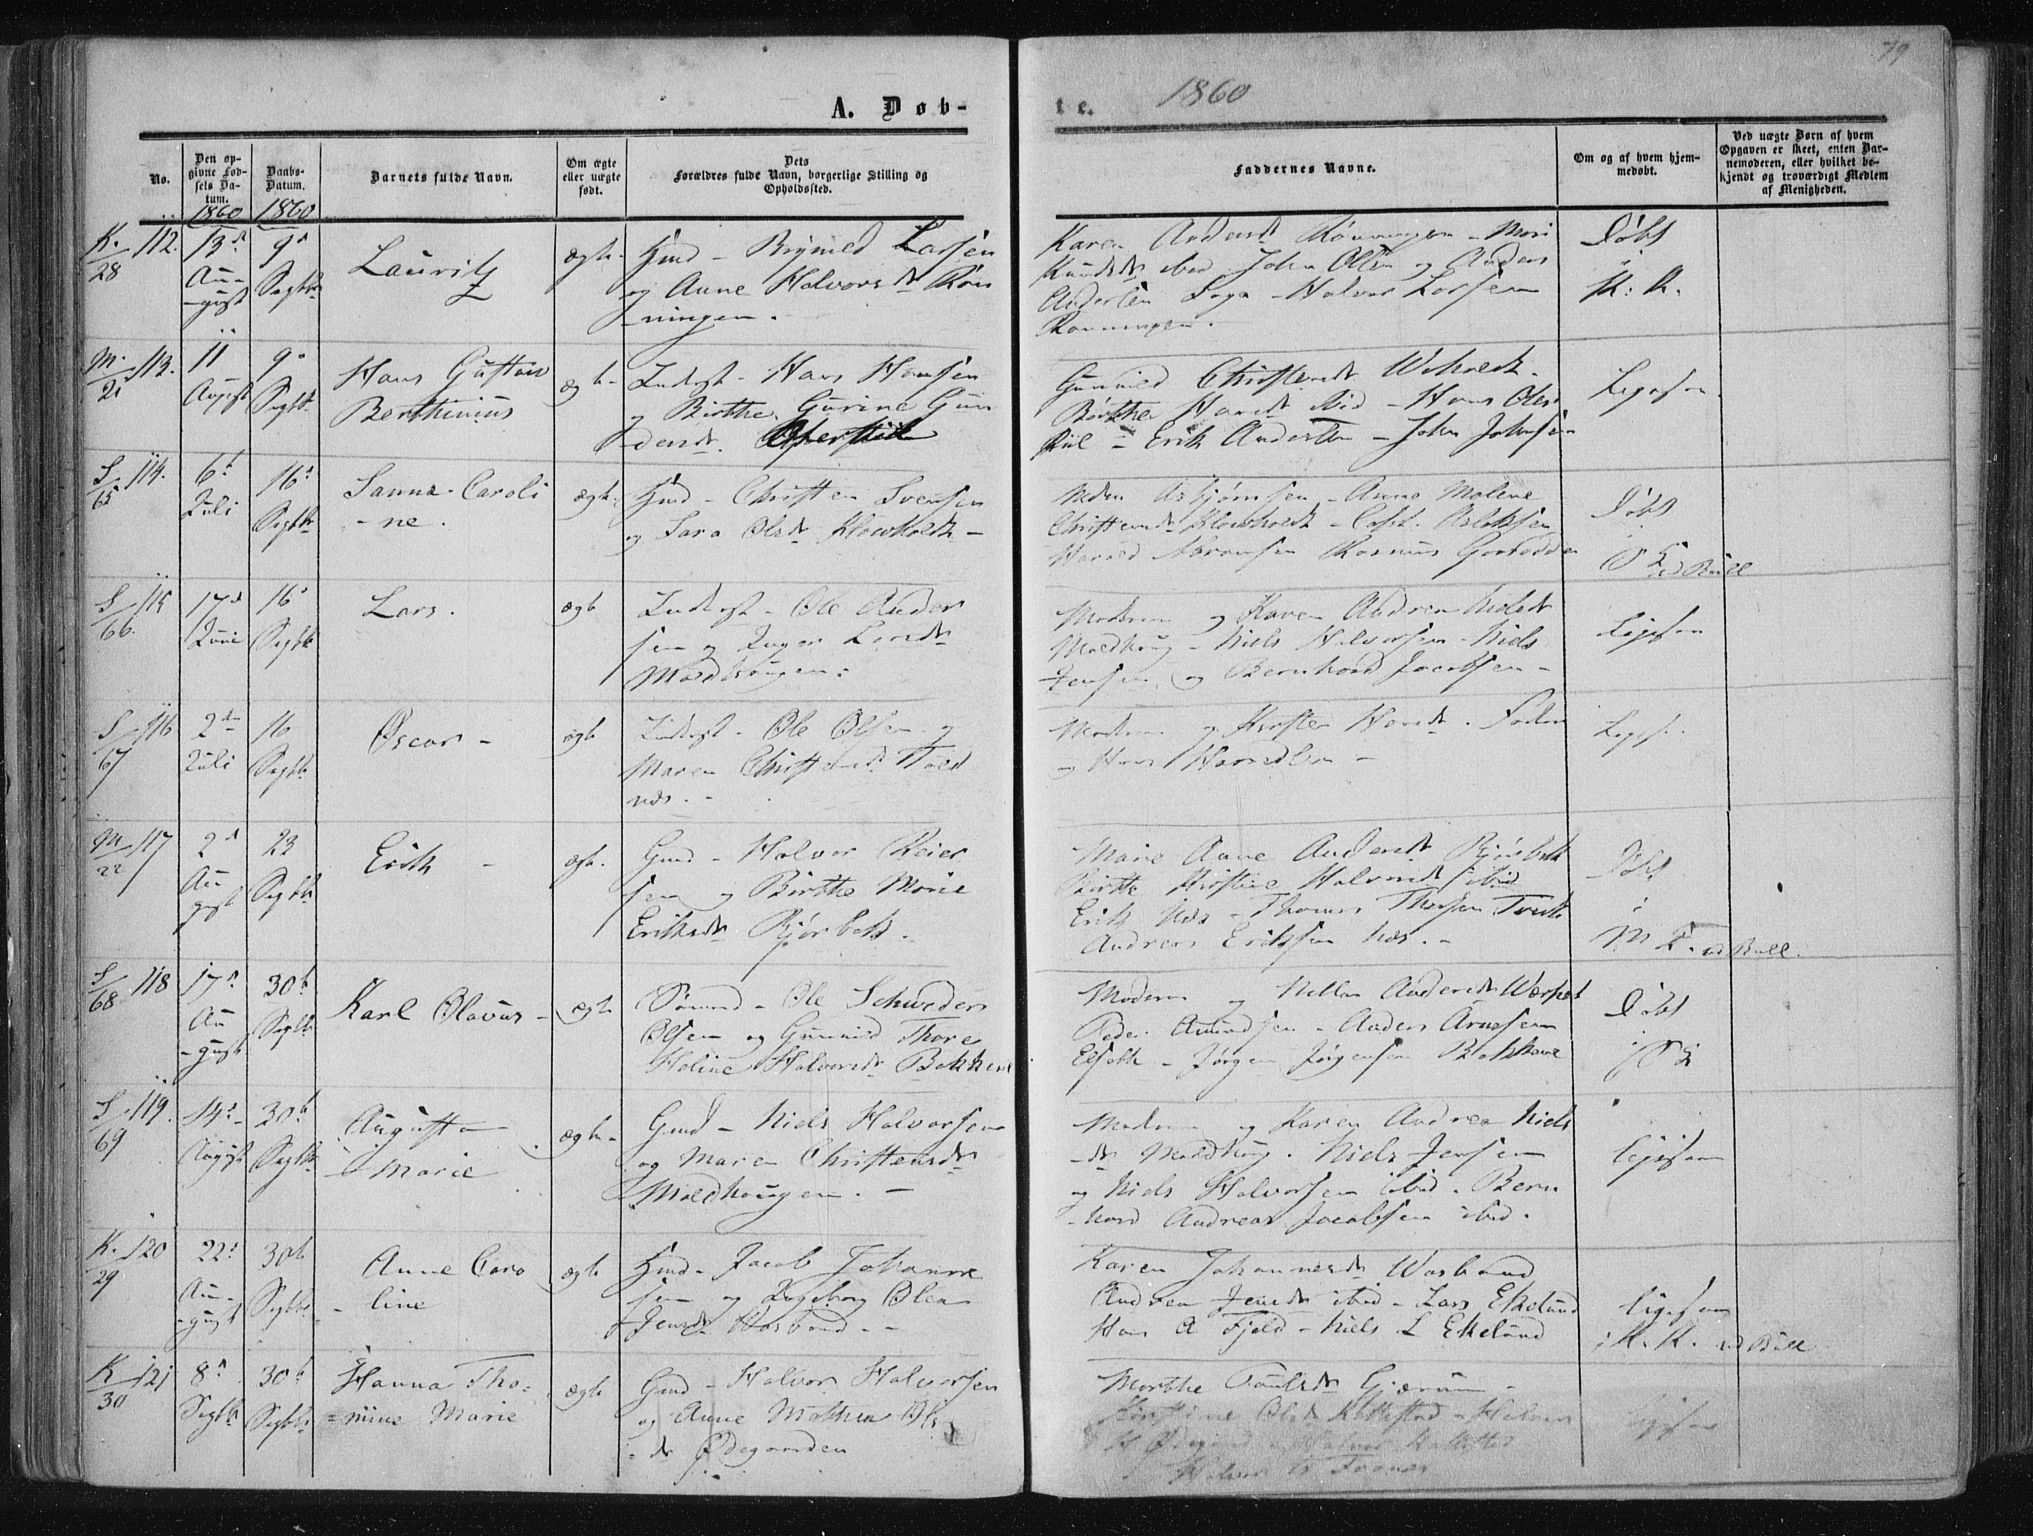 79
A. Døb-
te. 1860
No.
Den opgivne Fødsels Datum.
Daabs-Datum.
Barnets fulde Navn.
Om ægte eller uægte født.
Dets Forældres fulde Navn, borgerlige Stilling og Opholdssted.
Faddernes Navne.
Om og af hvem hjemmedøbt.
Ved uægte Børn af hvem Opgaven er skeet, enten Barnemoderen, eller hvilket bekjendt og troværdigt Medlem af Menigheden.
1860 1860
K. 28 112. 13d August 9d Septbr
Lauritz
ægte
Gmd - Larsen
og Anne Halvorsdt Røn
-ningen.
Karen Andersdt Rønningen - Mari
Knudsdt ibid John Olsen og Anders
Andersen - Halvor Larsen
Rønningen.
Døbt
i
K. K.
M. 21 113. 11 August 9d Septbr
Hans Gustav
Berthinius
ægte
Inderst - Hans Hansen
og Birthe Gurine Gun
dersdt.
Gunnild Christensdt
Birthe Hansdt ibid - Hans Olsen
- Erik Andersen - John Johnsen
Ligesaa
S 65 114. 6t Juli 16d Septbr
Sanna Caroli
-ne.
ægte
Gmd - Christen Svensen
og Sara Olsdt Klovholdt -
Asbjørnsen - Anne Malene
Christensdt Klovholdt - Aslaksen
Rasmus
Døbt
i S K v. Bull
S 66. 115 17d Juni 16d Septbr
Lars.
ægte
Inderst - Ole Ander
sen og Inger Larsdt
Moldhougen.
Moderen og Karen Andrea Nielsdt
Moldhoug - Niels Halvorsen - Niels
Jensen og Bernhard Jacobsen -
Ligesaa
S 67 116 2den Juli 16 Septbr
Oscar -
ægte
Inderst - Ole Olsen og
Maren Christensdt
næs. -
Moderen og Kirsten Hansdt. Faderen
og Hans -
Ligesaa
M 22 117 2d August 23 Septbr
Erik -
ægte
Gmd - Halvor Reier
sen og Birthe Marie
Eriksdt Bjørbek.
Marie Anne Andersdt Bjørbek
Birthe Kirstine Halvorsdt ibid
Erik Næs - Thomas
Andreas Eriksen Næs. -
Døbt
i
M K. v Bull.
S 68 118 17d August 30te Septbr
Karl Olavus -
ægte
Sømand - Ole Schweder
Olsen og Gunnild Thore
Heline Halvorsdt Bakken
Moderen og Andersdt
Peder Amundsen - Anders Arnesen
- Jørgen Jørgensen
Døbt
i S K
S 69 119. 14d August 30te Septbr
Augusta
Marie
ægte
Gmd - Niels Halvorsen
og Maren Christensdt
Moldhougen. -
Moderen og Karen Andrea Niels
-dt Moldhoug. Niels Jensen
og Niels Halvorsen ibid. Bern
-hard Andreas Jacobsen ibid.
ligesaa
K. 29 120 22d August 30te Septbr
Anne Caro
-line
ægte
Gmd - Jacob Johanne
sen og Ingeborg Olea
Jensdt Vasbond. -
Karen Johannesdt Wasbond
Andrea Jensdt ibid - Lars Ekelund
Hans A Fjeld - Niels L Ekelund
ligesaa
i K. K. v Bull
K 30 121 8d Septbr 30te Septbr
Hanna Tho-
=mine Marie
ægte
Gmd - Halvor Halvorsen
og Anne Mathea Ols
-dt Ødegaarden
Marthe Poulsdt Gjærum -
Olsdt - Halvor
Halvor
Ligesaa